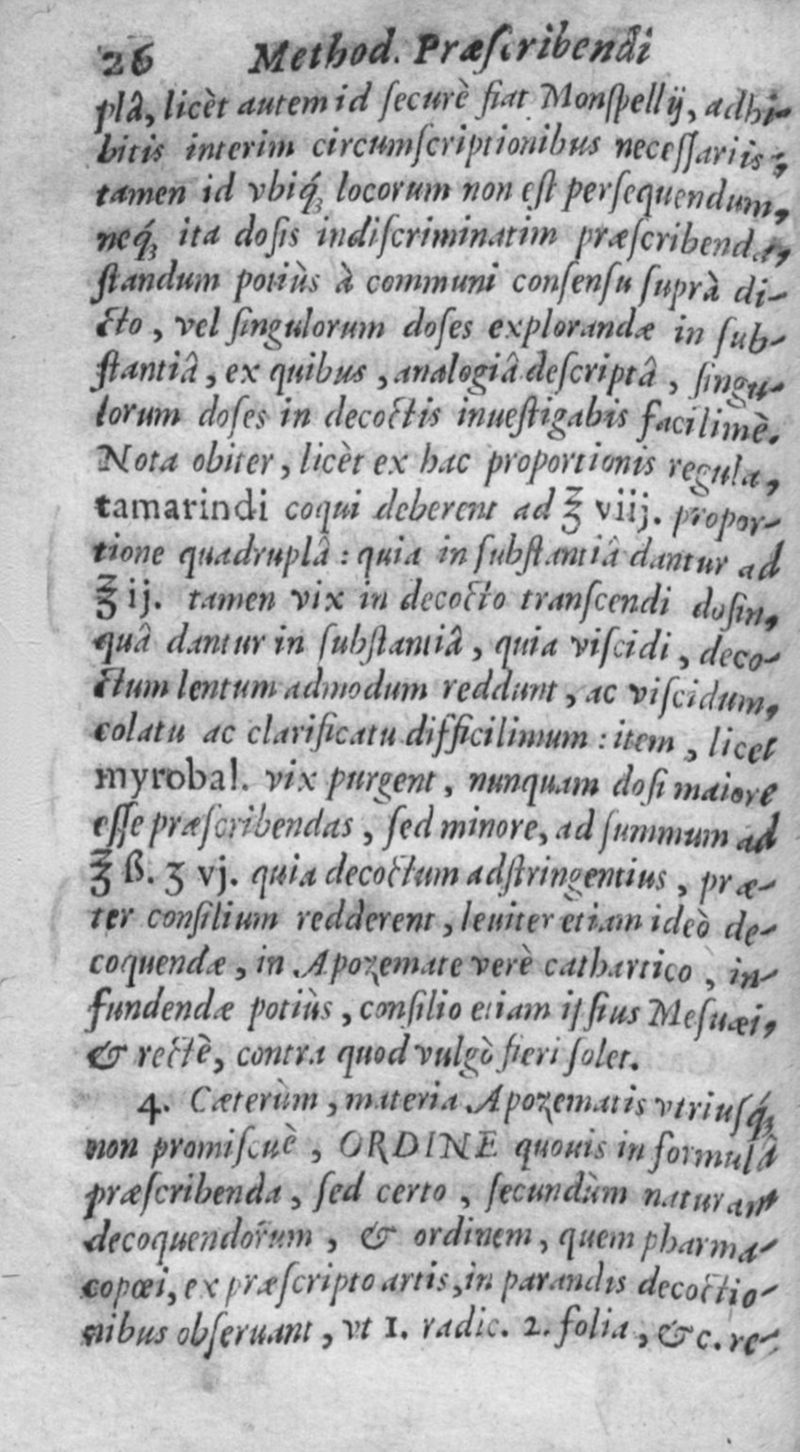 26 Method. Præſcribendi
plâ, licèt autem id ſecurè fiat Monſpellij, adhi-
bitis interim circumſcriptionibus neceſſariis;
tamen id vbiq́ꝫ locorum non eſt perſequendum,
neq́ꝫ ita doſis indiſcriminatim præſcribenda,
ſtandum potiùs à communi conſenſu ſuprà di-
cto, vel ſingulorum doſes explorandæ in ſub-
ſtantiâ, ex quibus, analogiâ deſcriptâ, ſingu-
lorum doſes in decoctis inueſtigabis facilimè.
Nota obiter, licèt ex hac proportionis regula,
tamarindi coqui deberent ad ℥ viij. propor-
tione quadruplâ: quia in ſubſtantiâ dantur ad
℥ ij. tamen vix in decocto tranſcendi doſin,
quâ dantur in ſubſtantiâ, quia viſcidi, deco-
ctum lentum admodum reddunt, ac viſcidum,
colatu ac clarificatu difficilimum: item, licet
myrobal. vix purgent, nunquam doſi maiore
eſſe præſcribendas, ſed minore, ad ſummum ad
℥ ß. ʒ vj. quia decoctum adſtringentius, præ-
ter conſilium redderent, leuiter etiam ideò de-
coquendæ, in Apozemate verè cathartico, in-
fundendæ potiùs, conſilio etiam ipſius Meſuæi,
& rectè, contra quod vulgò fieri ſolet.
4. Cæterùm, materia Apozematis vtriuſq́ꝫ
non promiſcuè, ORDINE quouis in formulâ
præſcribenda, ſed certo, ſecundùm naturam
decoquendorum, & ordinem, quem pharma-
copœi, ex præſcripto artis, in parandis decoctio-
nibus obſeruant, vt 1. radic. 2. folia, &c. re-